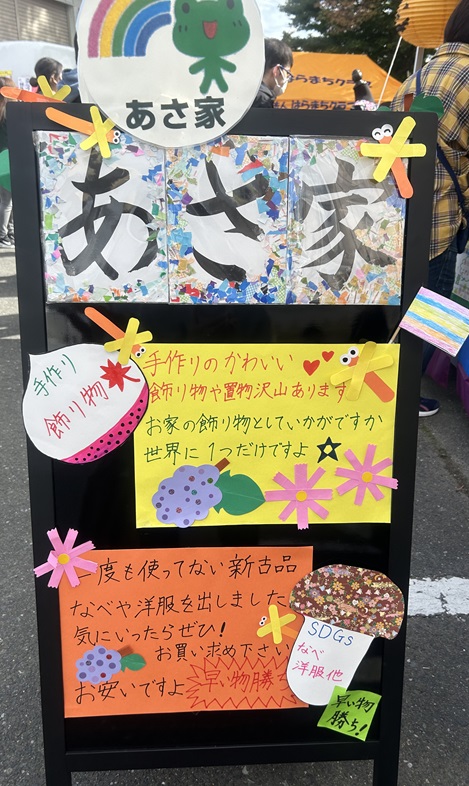 あさ家
はらまちクラブ
はらまちクラ
あさ家
手作り
飾り物
手作りのかわいい
飾り物や置物沢山あります
お家の飾り物としていかがですか
世界に1つだけですよ
一度も使ってない新古品
なべや洋服を出しました
気にいったらぜひ!
お買い求め下さい
お安いですよ
早い物勝ち
SDGs
なべ
洋服他
早い物
勝ち!